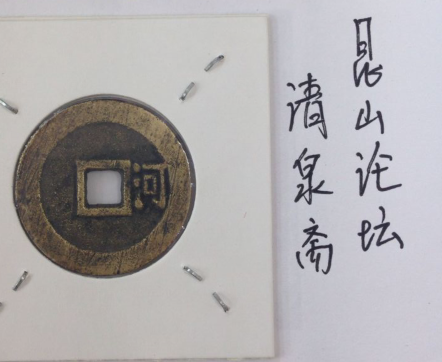 昆山论坛
清泉斋
河